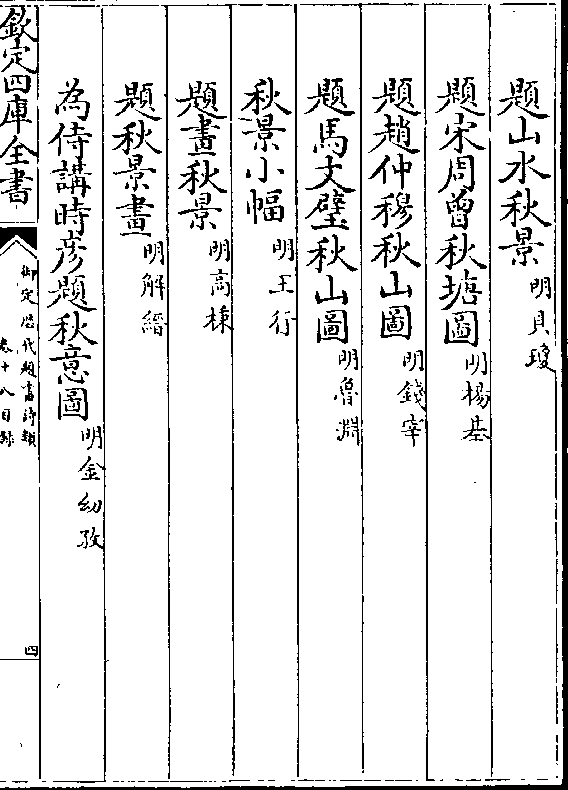 題山水秋景 明貝瓊
題宋周曾秋塘圖 明楊基
題趙仲穆秋山圖 明錢宰
題馬文璧秋山圖 明魯淵
秋景小幅 明王行
題畫秋景 明高棅
題秋景畫 明解縉
為侍講時彦題秋意圖 明金幼孜
欽定四庫全書
御定歴代題畫詩類
卷十八目録
四